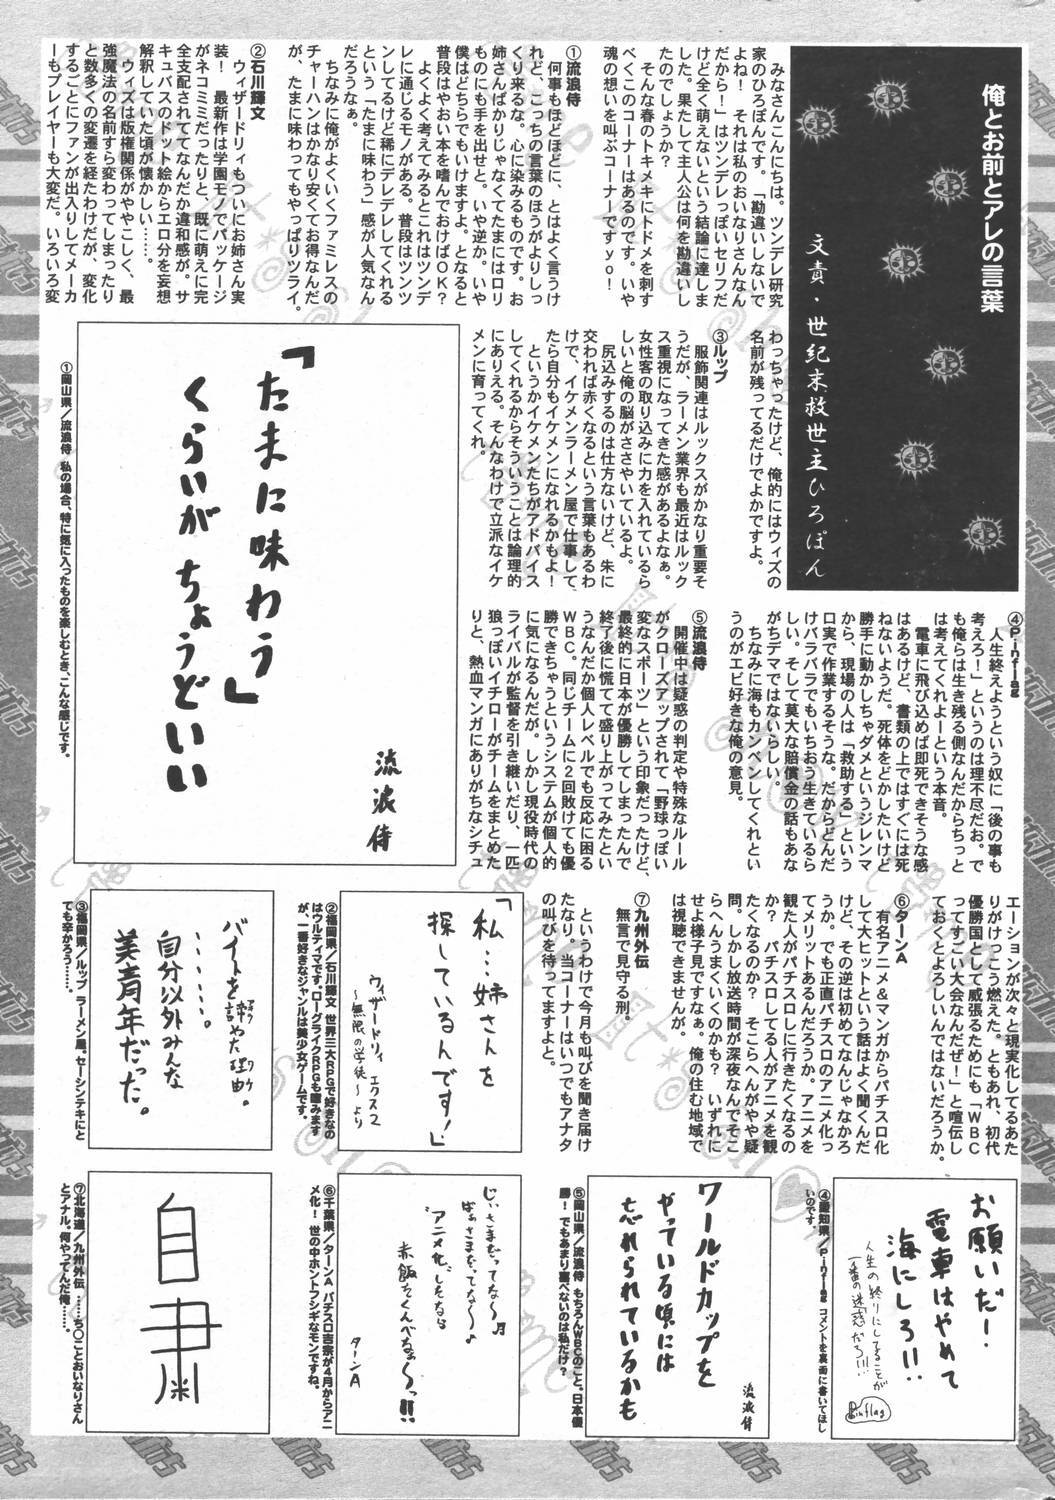 俺とお前とアレの言葉
文責・世紀末救世主ひろぽん
みなさんこんにちは。ツンデレ研究
家のひろぽんです。「勘違いしないで
よね! それは私のおいなりさんなん
だから!」はツンデレっぽいセリフだ
けど全く萌えないという結論に達しま
した。果たして主人公は何を勘違いし
たのでしょうか?
そんな春のトキメキにトドメを刺す
べくこのコーナーはあるのです。いや
魂の想いを叫ぶコーナーですyo!
①流浪侍
何事もほどほどに、とはよく言うけ
れど、こっちの言葉のほうがよりしっ
くり来るな。心に染みるものです。お
姉さんばかりじゃなくてたまにはロリ
ものにも手を出せと。いや逆か。いや
僕はどちらでもいけますよ。となると
普段はやおい本を嗜んでおけばOK?
よくよく考えてみるとこれはツンデ
レに通じるモノがある。普段はツンツ
ンしてるけど稀にデレデレしてくれる
という「たまに味わう」感が人気なん
だろうなぁ。
ちなみに俺がよくいくファミレスの
チャーハンはかなり安くてお得なんだ
が、たまに味わってもやっぱりツライ。
②石川輝文
ウィザードリィもついにお姉さん実
装! 最新作は学園モノでパッケージ
がネコミミだったりと、既に萌えに完
全支配されててなんだか違和感が。サ
キュバスのドット絵からエロ分を妄想
解釈していた頃が懐かしい……。
ウィズは版権関係がややこしく、最
強魔法の名前すら変わってしまったり
と数多くの変遷を経たわけだが、変化
するごとにファンが出入りしてメーカ
ーもプレイヤーも大変だ。いろいろ変
わっちゃったけど、俺的にはウィズの
名前が残ってるだけでよかですよ。
③ルップ
服飾関連はルックスがかなり重要そ
うだが、ラーメン業界も最近はルック
ス重視になってきた感があるよなぁ。
女性客の取り込みに力を入れているら
しいと俺の脳がささやいているよ。
尻込みするのは仕方ないけど、朱に
交われば赤くなるという言葉もあるわ
けで、イケメンラーメン屋で仕事して
たら自分もイケメンになれるかもよ!
というかイケメンたちがアドバイス
してくれるからそういうことは論理的
にありえる。そんなわけで立派なイケ
メンに育ってくれ。
「たまに味わう」
くらいが ちょうどいい
流浪侍
①岡山県/流浪侍 私の場合、特に気に入ったものを楽しむとき、こんな感じです。
④P.inflag
人生終えようという奴に「後の事も
考えろ!」というのは理不尽だお。で
も俺らは生き残る側なんだからちっと
は考えてくれよーという本音。
電車に飛び込めば即死できそうな感
はあるけど、書類の上ではすぐには死
ねないようだ。死体をどかしたいけど
勝手に動かしちゃダメというジレンマ
から、現場の人は「救助する」という
口実で作業するそうな。だからどんだ
けバラバラでもいちおう生きているら
しい。そして莫大な賠償金の話もあな
がちデマではないらしい。
ちなみに海もカンベンしてくれとい
うのがエビ好きな俺の意見。
⑤流浪侍
開催中は疑惑の判定や特殊なルール
がクローズアップされて「野球っぽい
変なスポーツ」という印象だったけど、
最終的に日本が優勝してしまったんで
終了後に慌てて盛り上がってみたとい
うなんだか個人レベルでも反応に困る
WBC。同じチームに2回敗けても優
勝できちゃうというシステムが個人的
に気になるんだが。しかし現役時代の
ライバルが監督を引き継いだり、一匹
狼っぽいイチローがチームをまとめた
りと、熱血マンガにありがちなシチュ
エーションが次々と現実化してるあた
りがけっこう燃えた。ともあれ、初代
優勝国として威張るためにも「WBC
ってすごい大会なんだぜ!」と喧伝し
ておくとよろしいんではないだろうか。
⑥ターンA
有名アニメ&マンガからパチスロ化
して大ヒットという話はよく聞くんだ
けど、その逆は初めてなんじゃなかろ
うか。でも正直パチスロのアニメ化っ
てメリットあるんだろうか。アニメを
観た人がパチスロしに行きたくなるの
か? パチスロしてる人がアニメを観
たくなるのか? そこらへんがやや疑
問。しかし放送時間が深夜なんでそこ
らへんうまくいくのかも? いずれに
せよ様子見ですなぁ。俺の住む地域で
は視聴できませんが。
⑦九州外伝
無言で見守る刑。
というわけで今月も叫びを聞き届け
たなり。当コーナーはいつでもアナタ
の叫びを待ってますよと。
「私……姉さんを
探しているんです!」
ウィザードリィ エクス2
～無限の学徒～より
②福岡県/石川輝文 世界三大RPGで好きなの
はウルティマです。ローグライクRPGも嗜みます
が、一番好きなジャンルは美少女ゲームです。
バイトを辞めた理由。
………
自分以外みんな
美青年だった。
③福岡県/ルップ ラーメン屋。セーシンテキにと
ても辛かろう……。
お願いだ!
電車はやめて
海にしろ!!
人生の終りにしてることが
一番の迷惑だろ!!!
P.inflag
④愛知県/P.inflag コメントを裏面に書いてほし
いのです。
ワールドカップを
やっている頃には
忘れられているかも
流浪侍
⑤岡山県/流浪侍 もちろんWBCのこと。日本優
勝! でもあまり喜べないのは私だけ?
じぃさまだってな～♪
ばぁさまだってな～♪
アニメ化しそなら
赤飯たくんべなぁ～っ!!
ターンA
⑥千葉県/ターンA パチスロ吉宗が4月からアニ
メ化! 世の中ホントフシギなモンですね。
自粛
⑦北海道/九州外伝 ……ち○ことおいなりさん
とアナル。何やってんだ俺……。